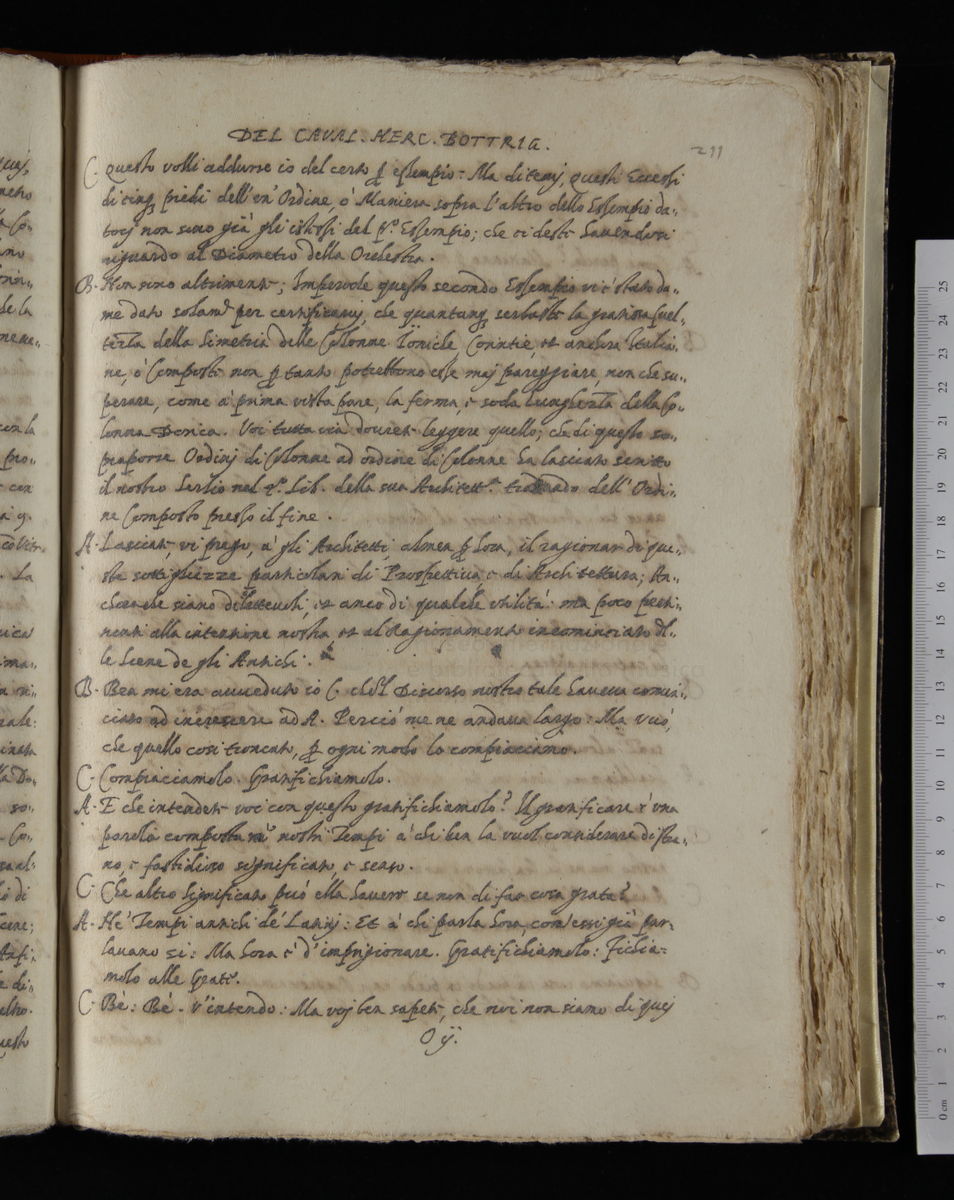 DEL CAVAL. HERC. BOTTRIG.
211
C. questo volli addurre io del certo ꝑ essempio: Ma ditemj, questi Eccessi
di cinqꝫ piedi dell'un' Ordine ò Maniera sopra l'altro dello Essempio da„
toci non sono già gli istessi del pr.º Essempio; che ci deste havendovi
riguardo al Diametro della Orchestra.
B. Non sono altrimente; Imperoche questo secondo Essempio vi è stato da„
me dato solamte per certificarvj, che quantunqꝫ serbasse la gratiosa suel„
tezza della Simetria delle Colonne Ioniche Corintie, et ancora Italia„
ne, ò Composte non ꝑ tanto potrebbono esse maj pareggiare, non che su„
perare, come à prima vista pare, la ferma, e soda lunghezza della Co„
lonna Dorica. Voi tutta via dovrete leggere quello; che di questo so„
praporre Ordinj di Colonne ad ordine di Colonne ha lasciato scritto
il nostro Serlio nel 4.º Lib. della sua Architettra trattando dell'Ordi„
ne Composto presso il fine.
A. Lasciate, vi prego, à gli Architetti, almen ꝑ hora, il ragionar di que„
ste sottigliezze particolari di Prospettiva, e di Architettura; An„
chora che siano diletteuoli, et anco di qualche utilità: ma poco perti„
nenti alla intentione nostra, et al Ragionamento incominciato del„
le Scene de gli Antichi.
B. Ben mi era avveduto io C. che'l Discorso nostro tale haueua comin„
ciato ad increscere ad A. Perciò me ne andaua largo: Ma vuò,
che quello così troncato, ꝑ ogni modo lo compiacciamo.
C. Compiacciamolo. Gratifichiamolo.
A. E che intendete voi con questo gratifichiamolo? Il gratificare è una
parola composta ne' nostri Tempi à chi ben la vuol considerare di stra„
no, e fastidioso significato, e senso.
C. Che altro significato può ella havere se non di far cosa grata?
A. Ne' Tempi antichi de' Latinj: Et à chi parla hora, com'essi già par„
lavano sì: Ma hora è d'imprigionare. Gratifichiamolo: Ficchia„
molo alle Grate.
C. Bè: Bè. V'intendo: Ma voj ben sapete, che noi non siamo di quej
O ij.